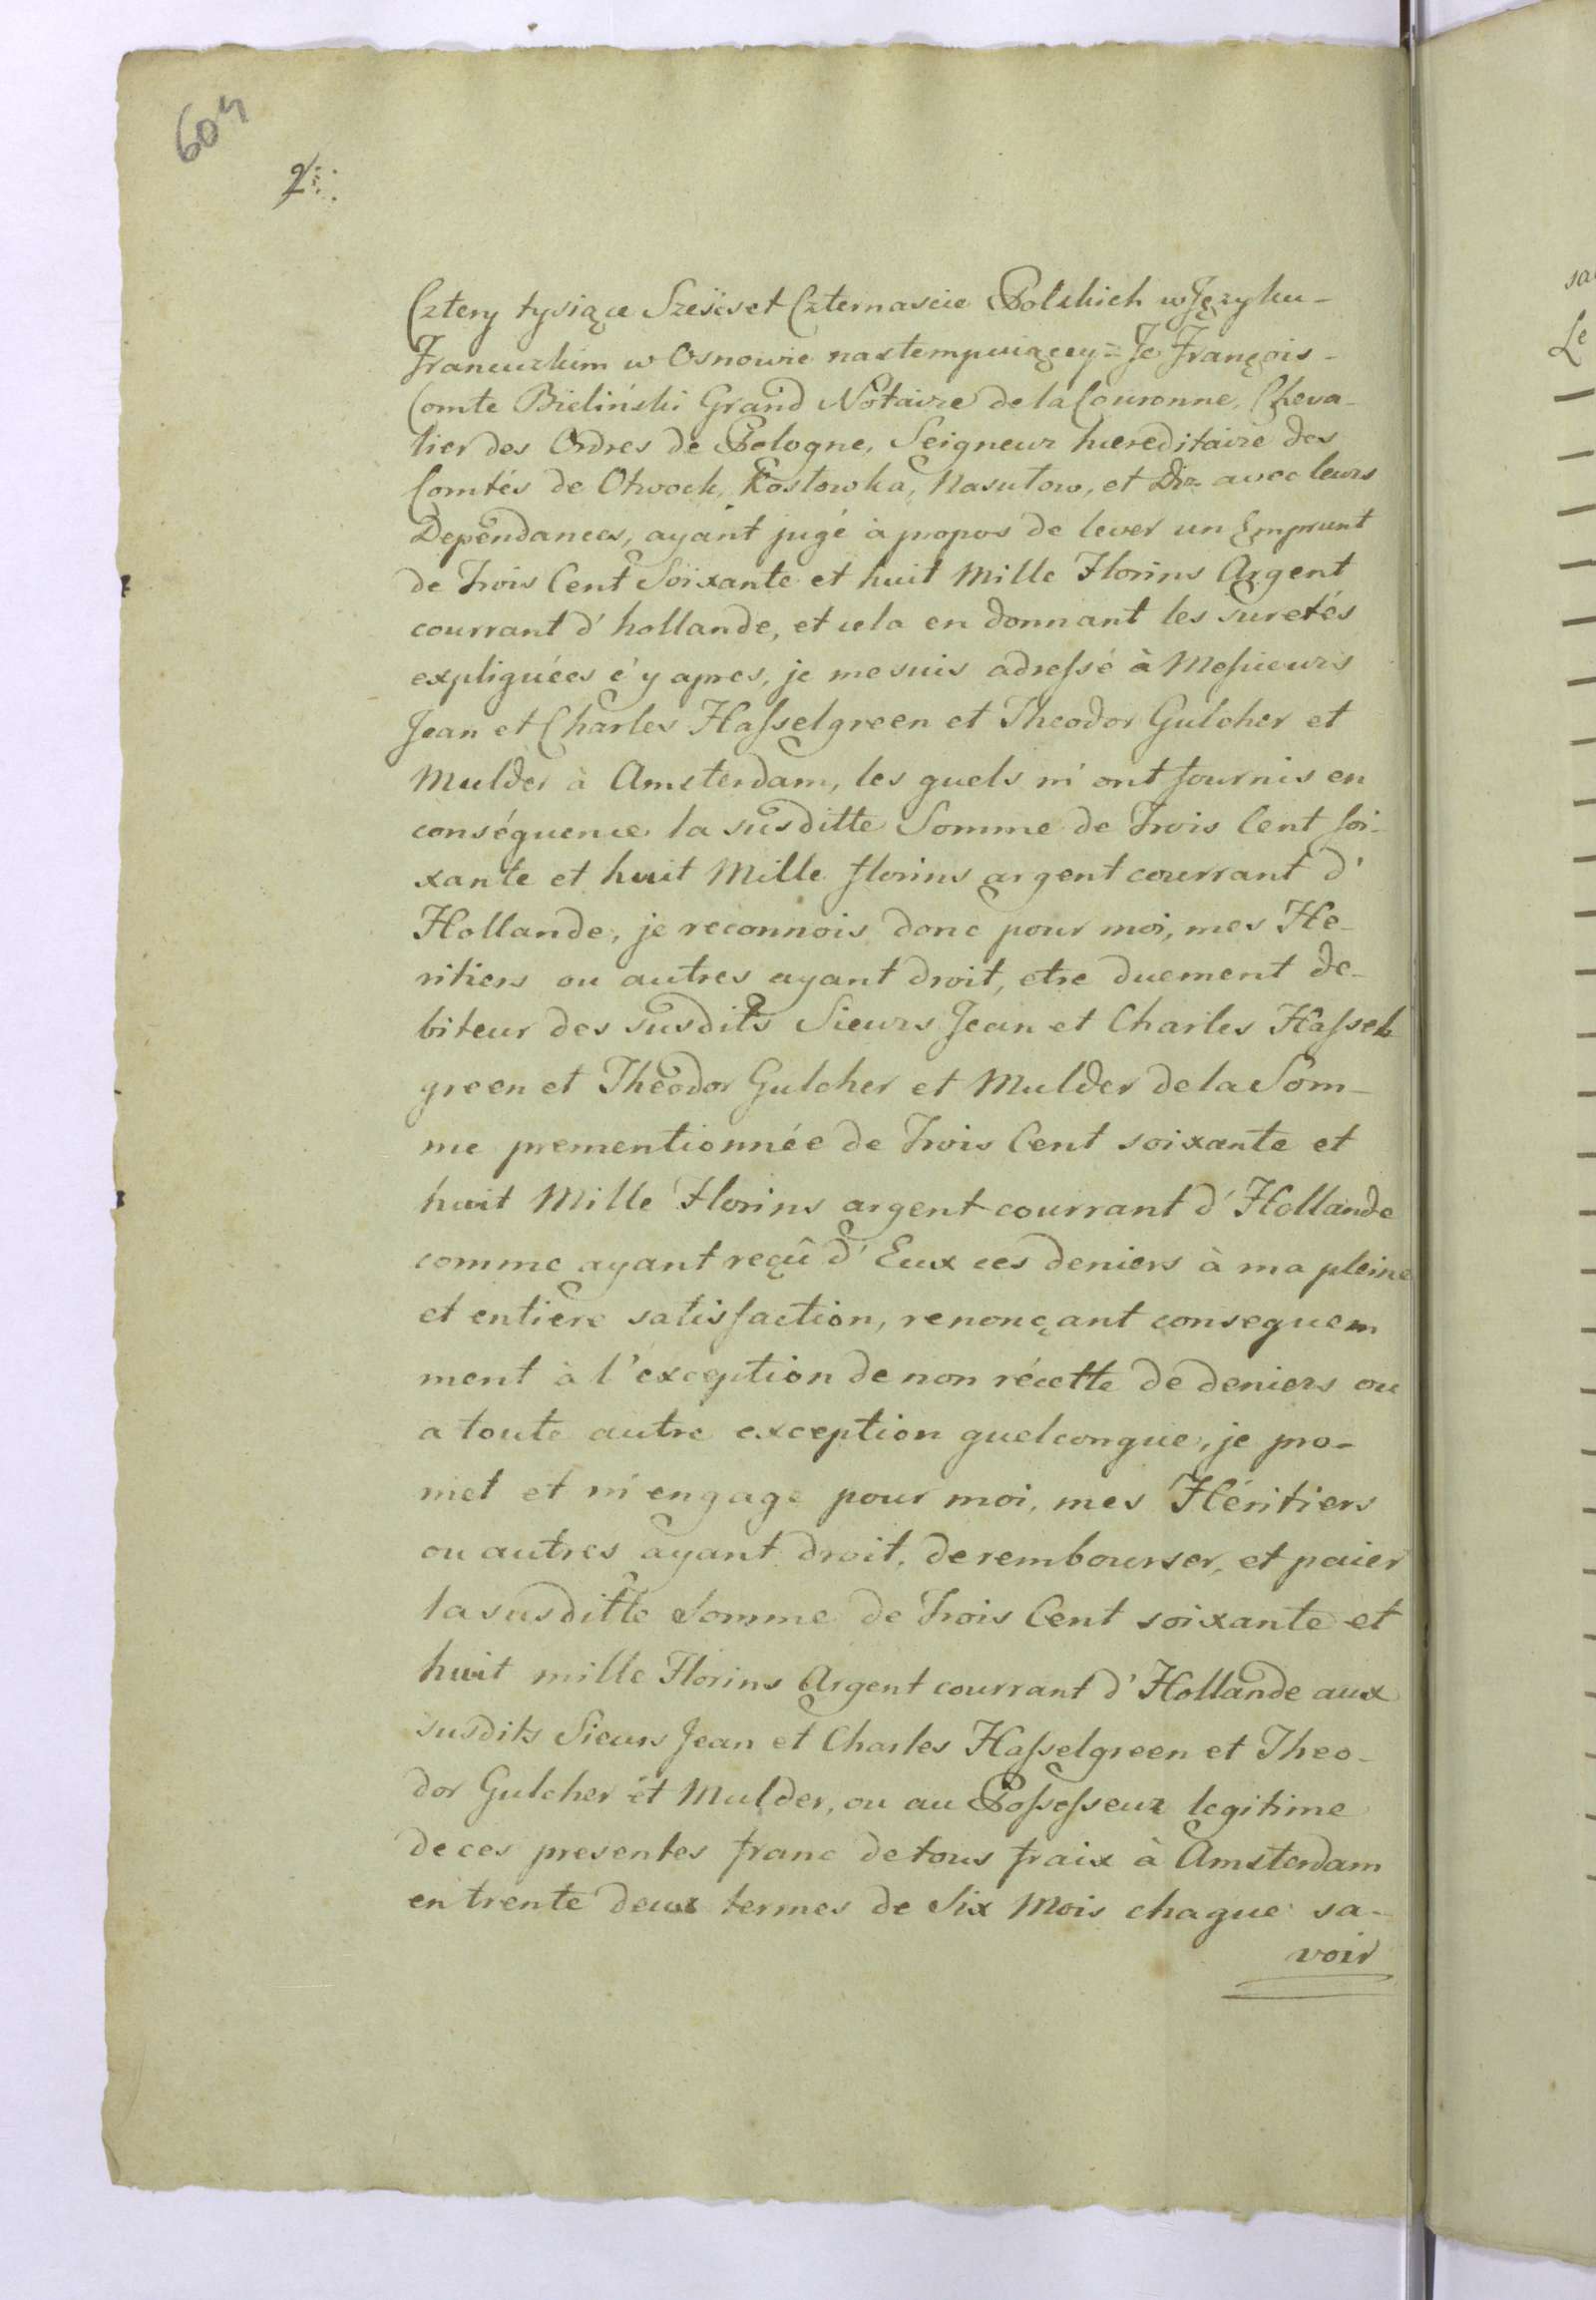 604
2
Cztery tysiące Sześćset Czternaście Polskich w Języku-
Francuzkim w Osnowie nastempuiącey = Je François-
Comte Bieliński Grand Notaire de la Couronne, Cheva-
lier des Ordres de Pologne, Seigneur hæreditaire des
Comtés de Otwock, Kostowka, Nasutow, et avec leurs
Dependances, ayant jugé à propos de lever un Emprunt
de Trois Cent Soixante et huit Mille Florins Argent
courrant d' hollande, et cela en donnant les suretés
expliquées c'y apres, je me suis adressé à Messieurs
Jean et Charles Hasselgreen et Theodor Gulcher et
Mulder à Amsterdam, les quels m'ont fournis en
conséquence la susditte Somme de Trois Cent soi-
xante et huit Mille florins argent courrant d'
Hollande, je reconnois donc pour moi, mes He-
ritiers ou autres ayant droit, etre duement de-
biteur des susdits Sieurs Jean et Charles Hassel-
green et Theodor Gulcher et Mulder de la Som-
me prementionnée de Trois Cent soixante et
huit Mille Florins argent courrant d' Hollande
comme ayant reçû d' Eux ces deniers à ma pleine
et entiere satisfaction, renonçant consequem
ment à l'exception de non récette de deniers ou
a toute autre exception quelconque, je pro-
met et m'engage pour moi, mes Héritiers
ou autres ayant droit, de rembourser, et paier
la susditte Somme de Trois Cent soixante et
huit mille Florins Argent courrant d' Hollande aux
susdits Sieurs Jean et Charles Hasselgreen et Theo-
dor Gulcher et Mulder, ou au Possesseur legitime
de ces presentes franc de tous fraix à Amsterdam
en trente deux termes de Six Mois chaque sa-
voir
Le